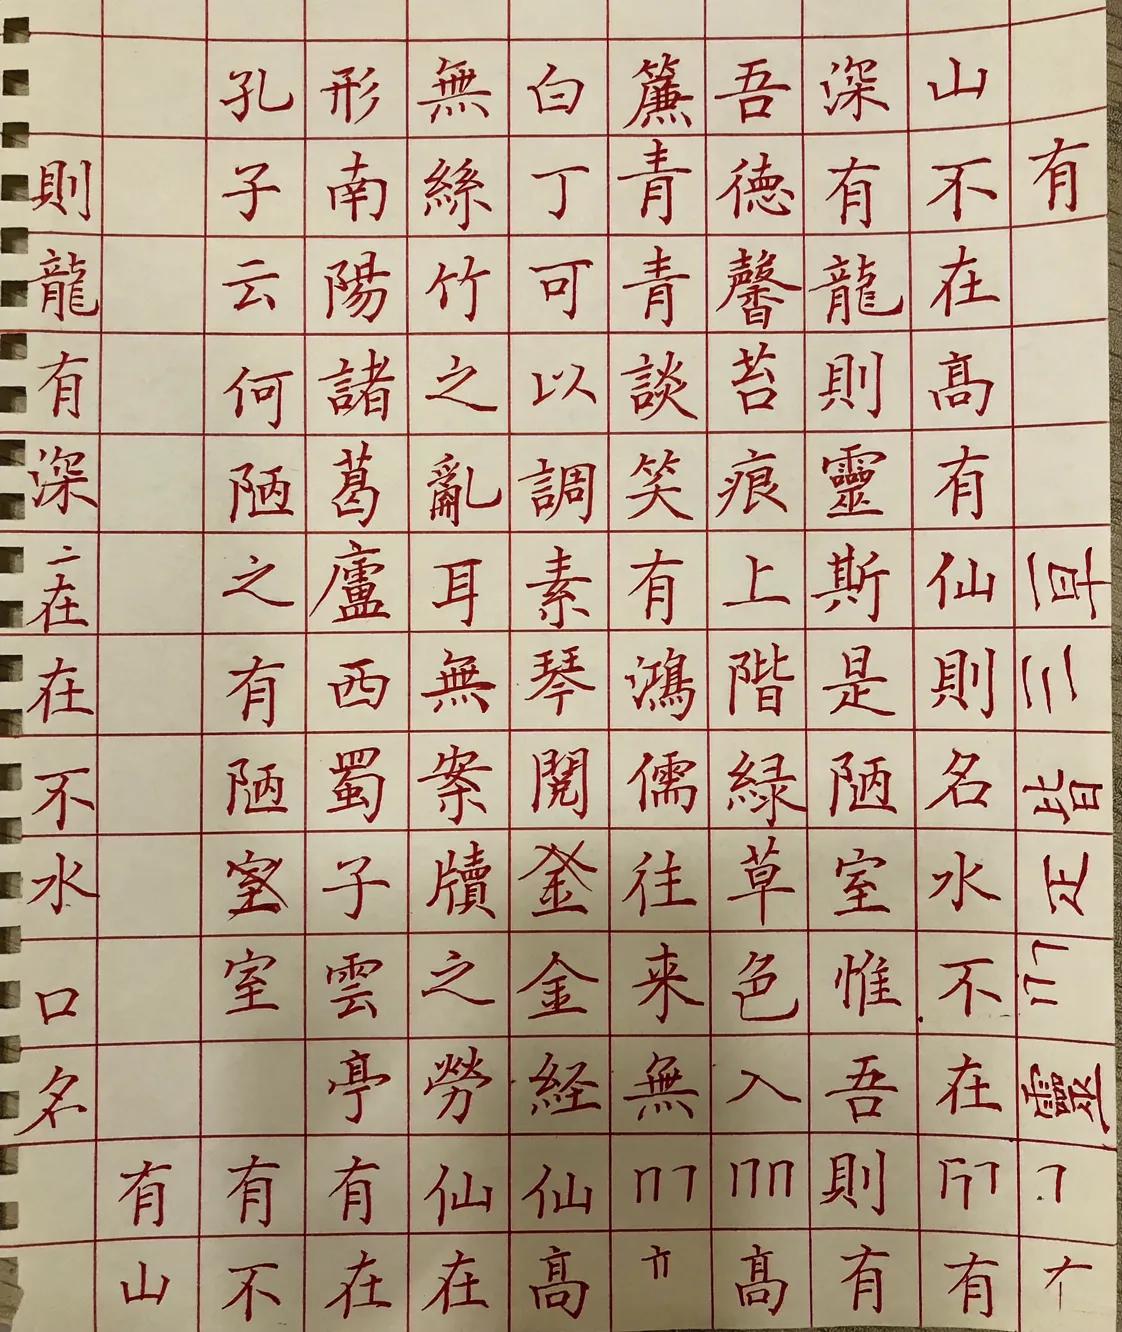 有三皆正靈
山不在髙有仙則名水不在有
深有龍則靈斯是陋室惟吾則有
吾德馨苔痕上階緑草色入髙
簾青青談笑有鴻儒往来無
白丁可以調素琴閲金経仙髙
無絲竹之亂耳無案牘之勞仙在
形南陽諸葛廬西蜀子雲亭有在
孔子云何陋之有陋室有不
有山
則龍有深在在不水口名